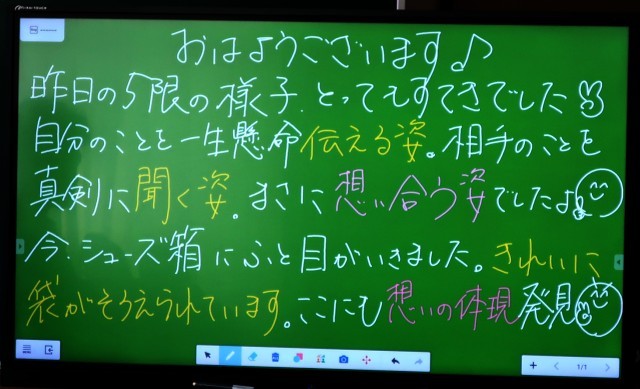 おはようございます♪
昨日の5限の様子、とってもすてきでした
自分のことを一生懸命伝える姿。相手のことを
真剣に聞く姿。まさに想い合う姿でしたよ。
今、シューズ箱にふと目がいきました。きれいに
袋がそろえられています。ここにも想いの体現発見
1/1